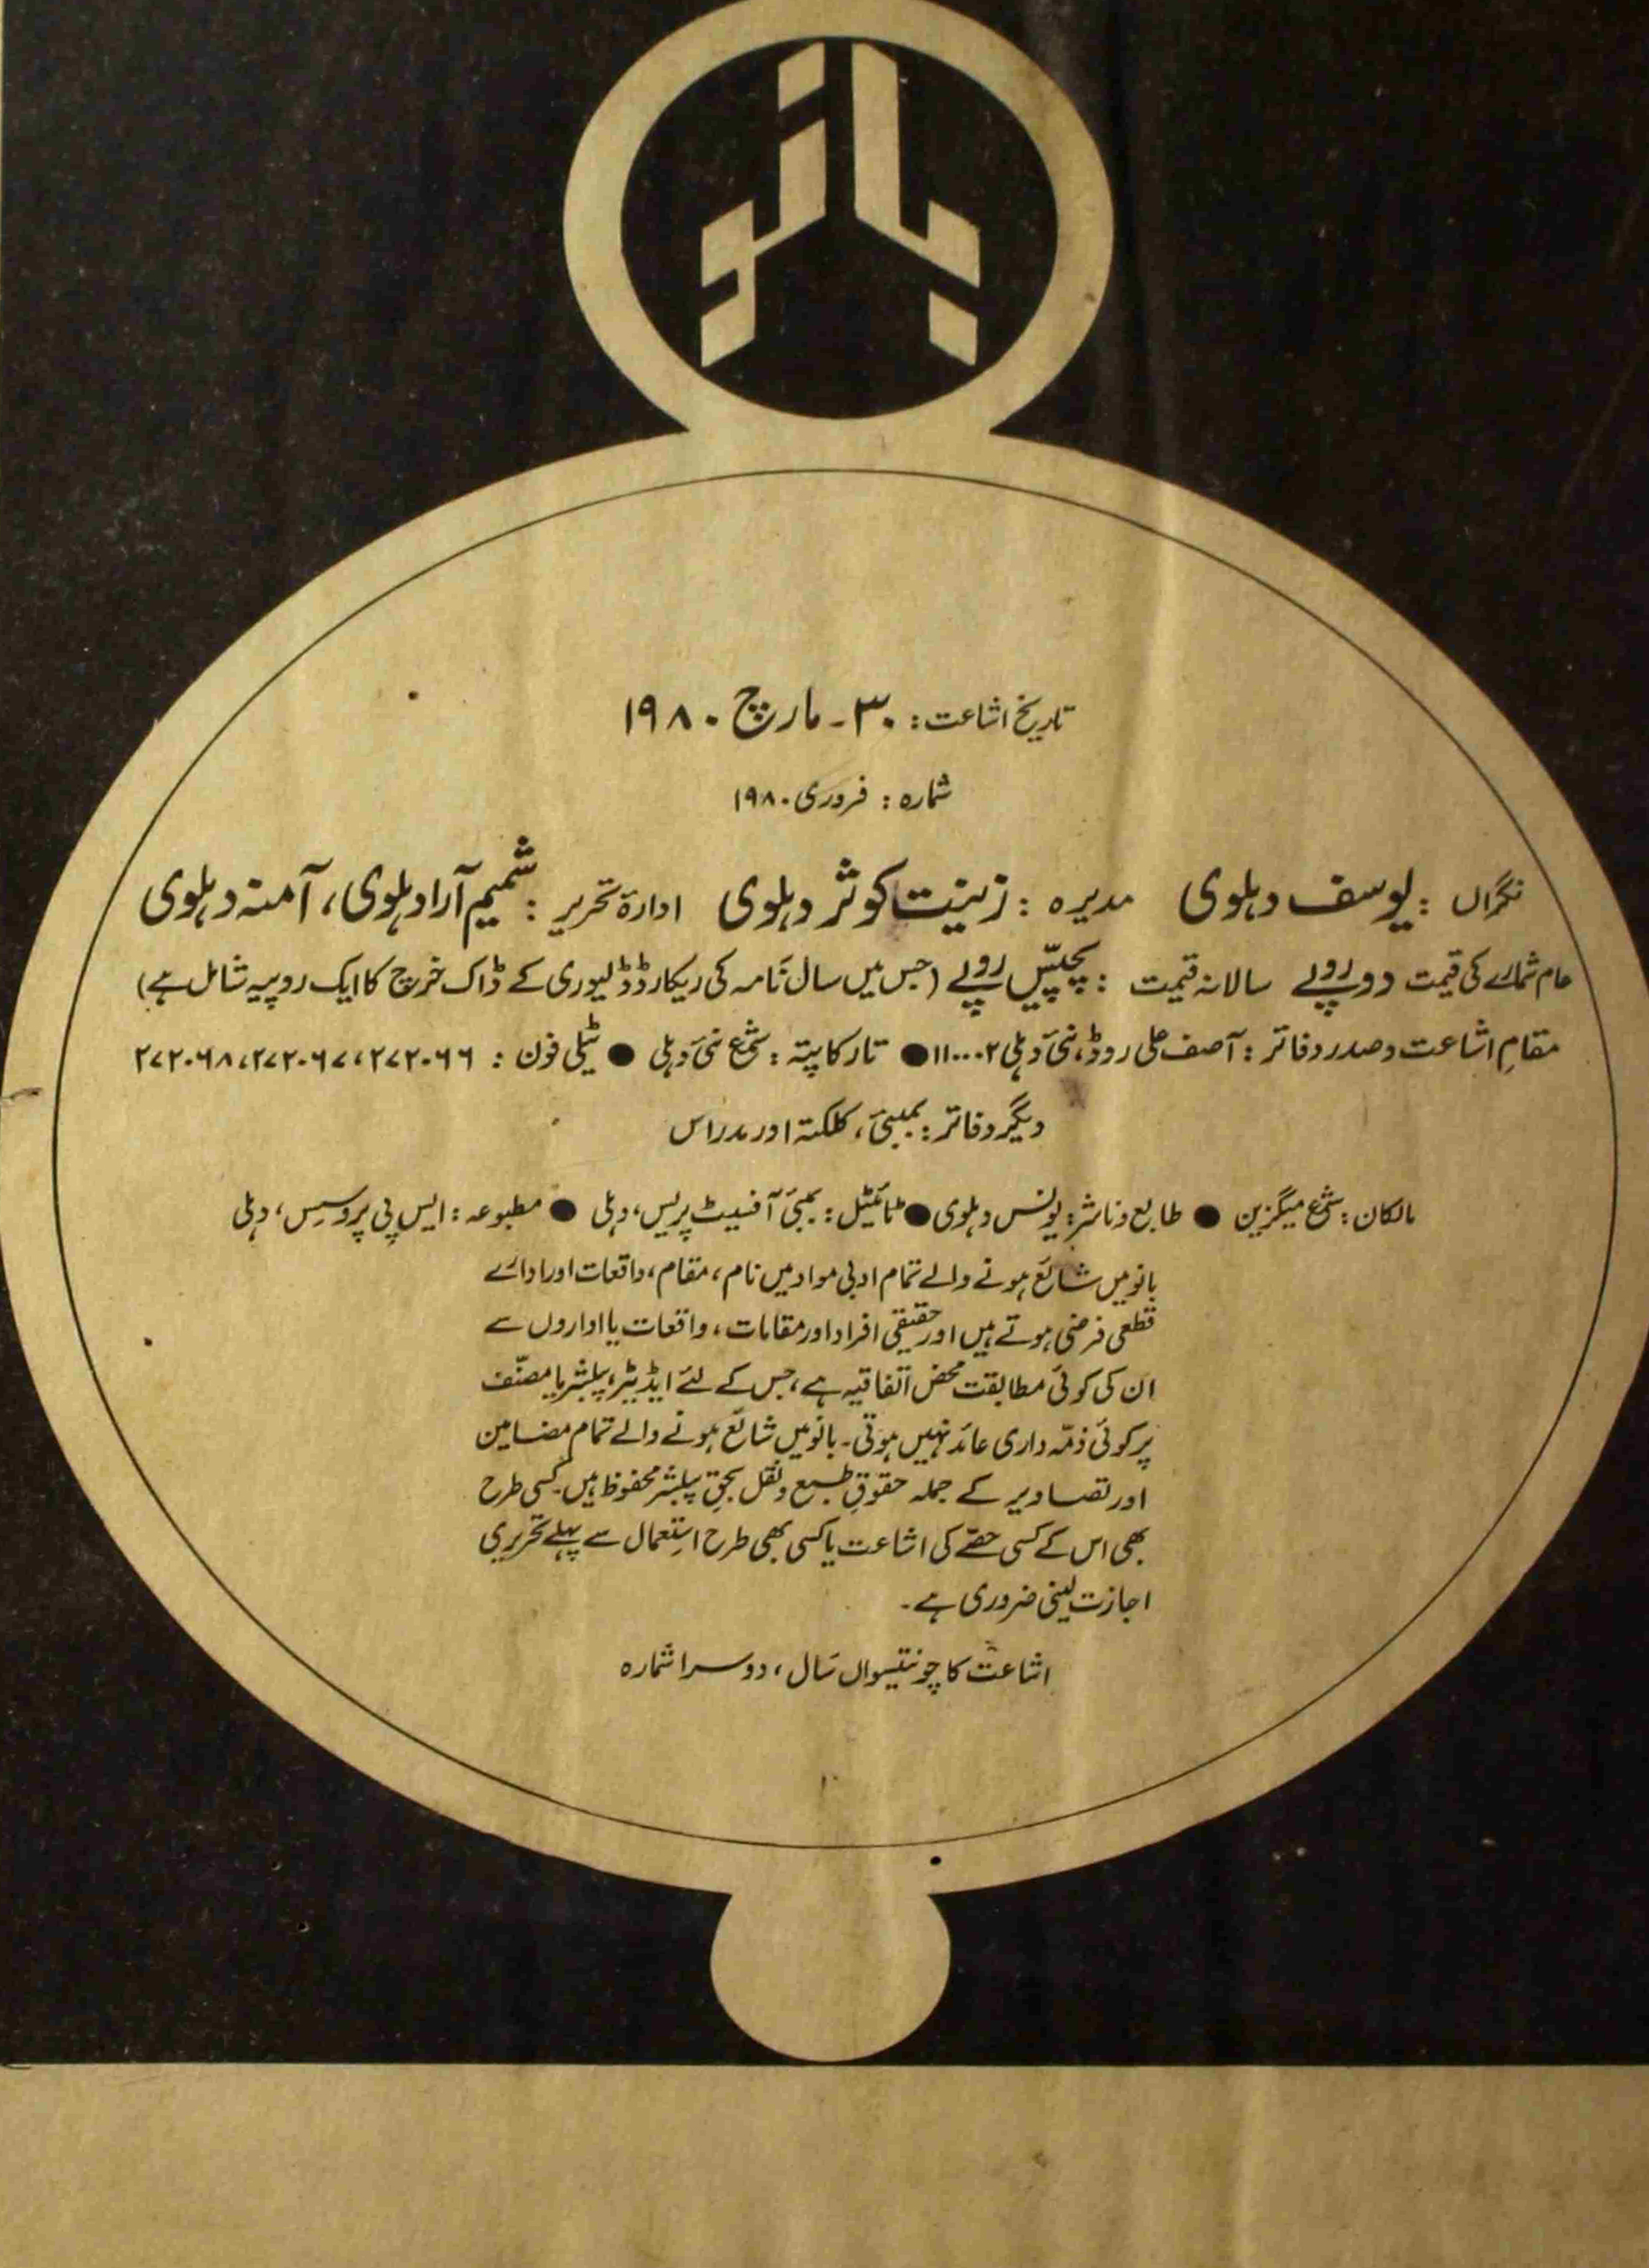 بانو
تاریخ اشاعت: ۳۰۔ مارچ ۱۹۸۰
شمارہ: فروری ۱۹۸۰
نگراں: یوسف دہلوی مدیرہ: زینت کوثر دہلوی ادارۂ تحریر: شمیم آرا دہلوی، آمنہ دہلوی
عام شمارے کی قیمت دو روپے سالانہ قیمت: پچیس روپے (جس میں سال نامہ کی ریکارڈڈ ڈلیوری کے ڈاک خرچ کا ایک روپیہ شامل ہے)
مقامِ اشاعت و صدر دفاتر: آصف علی روڈ، نئی دہلی ۱۱۰۰۰۲ ● تار کا پتہ: شمع نئی دہلی ● ٹیلی فون: ۲۷۲۰۶۶، ۲۷۲۰۶۷، ۲۷۲۰۶۸
دیگر دفاتر: بمبئی، کلکتہ اور مدراس
مالکان: شمع میگزین ● طابع و ناشر: یونس دہلوی ● ٹائیٹل: بمبئی آفسیٹ پریس، دہلی ● مطبوعہ: ایس پی پروسس، دہلی
بانو میں شائع ہونے والے تمام ادبی مواد میں نام، مقام، واقعات اور ادارے
قطعی فرضی ہوتے ہیں اور حقیقی افراد اور مقامات، واقعات یا اداروں سے
ان کی کوئی مطابقت محض اتفاقیہ ہے، جس کے لئے ایڈیٹر، پبلشر یا مصنّف
پر کوئی ذمّہ داری عائد نہیں ہوتی۔ بانو میں شائع ہونے والے تمام مضامین
اور تصاویر کے جملہ حقوقِ طبع و نقل بحقِ پبلشر محفوظ ہیں۔ کسی طرح
بھی اس کے کسی حصّے کی اشاعت یا کسی بھی طرح استعمال سے پہلے تحریری
اجازت لینی ضروری ہے۔
اشاعت کا چونتیسواں سال، دوسرا شمارہ